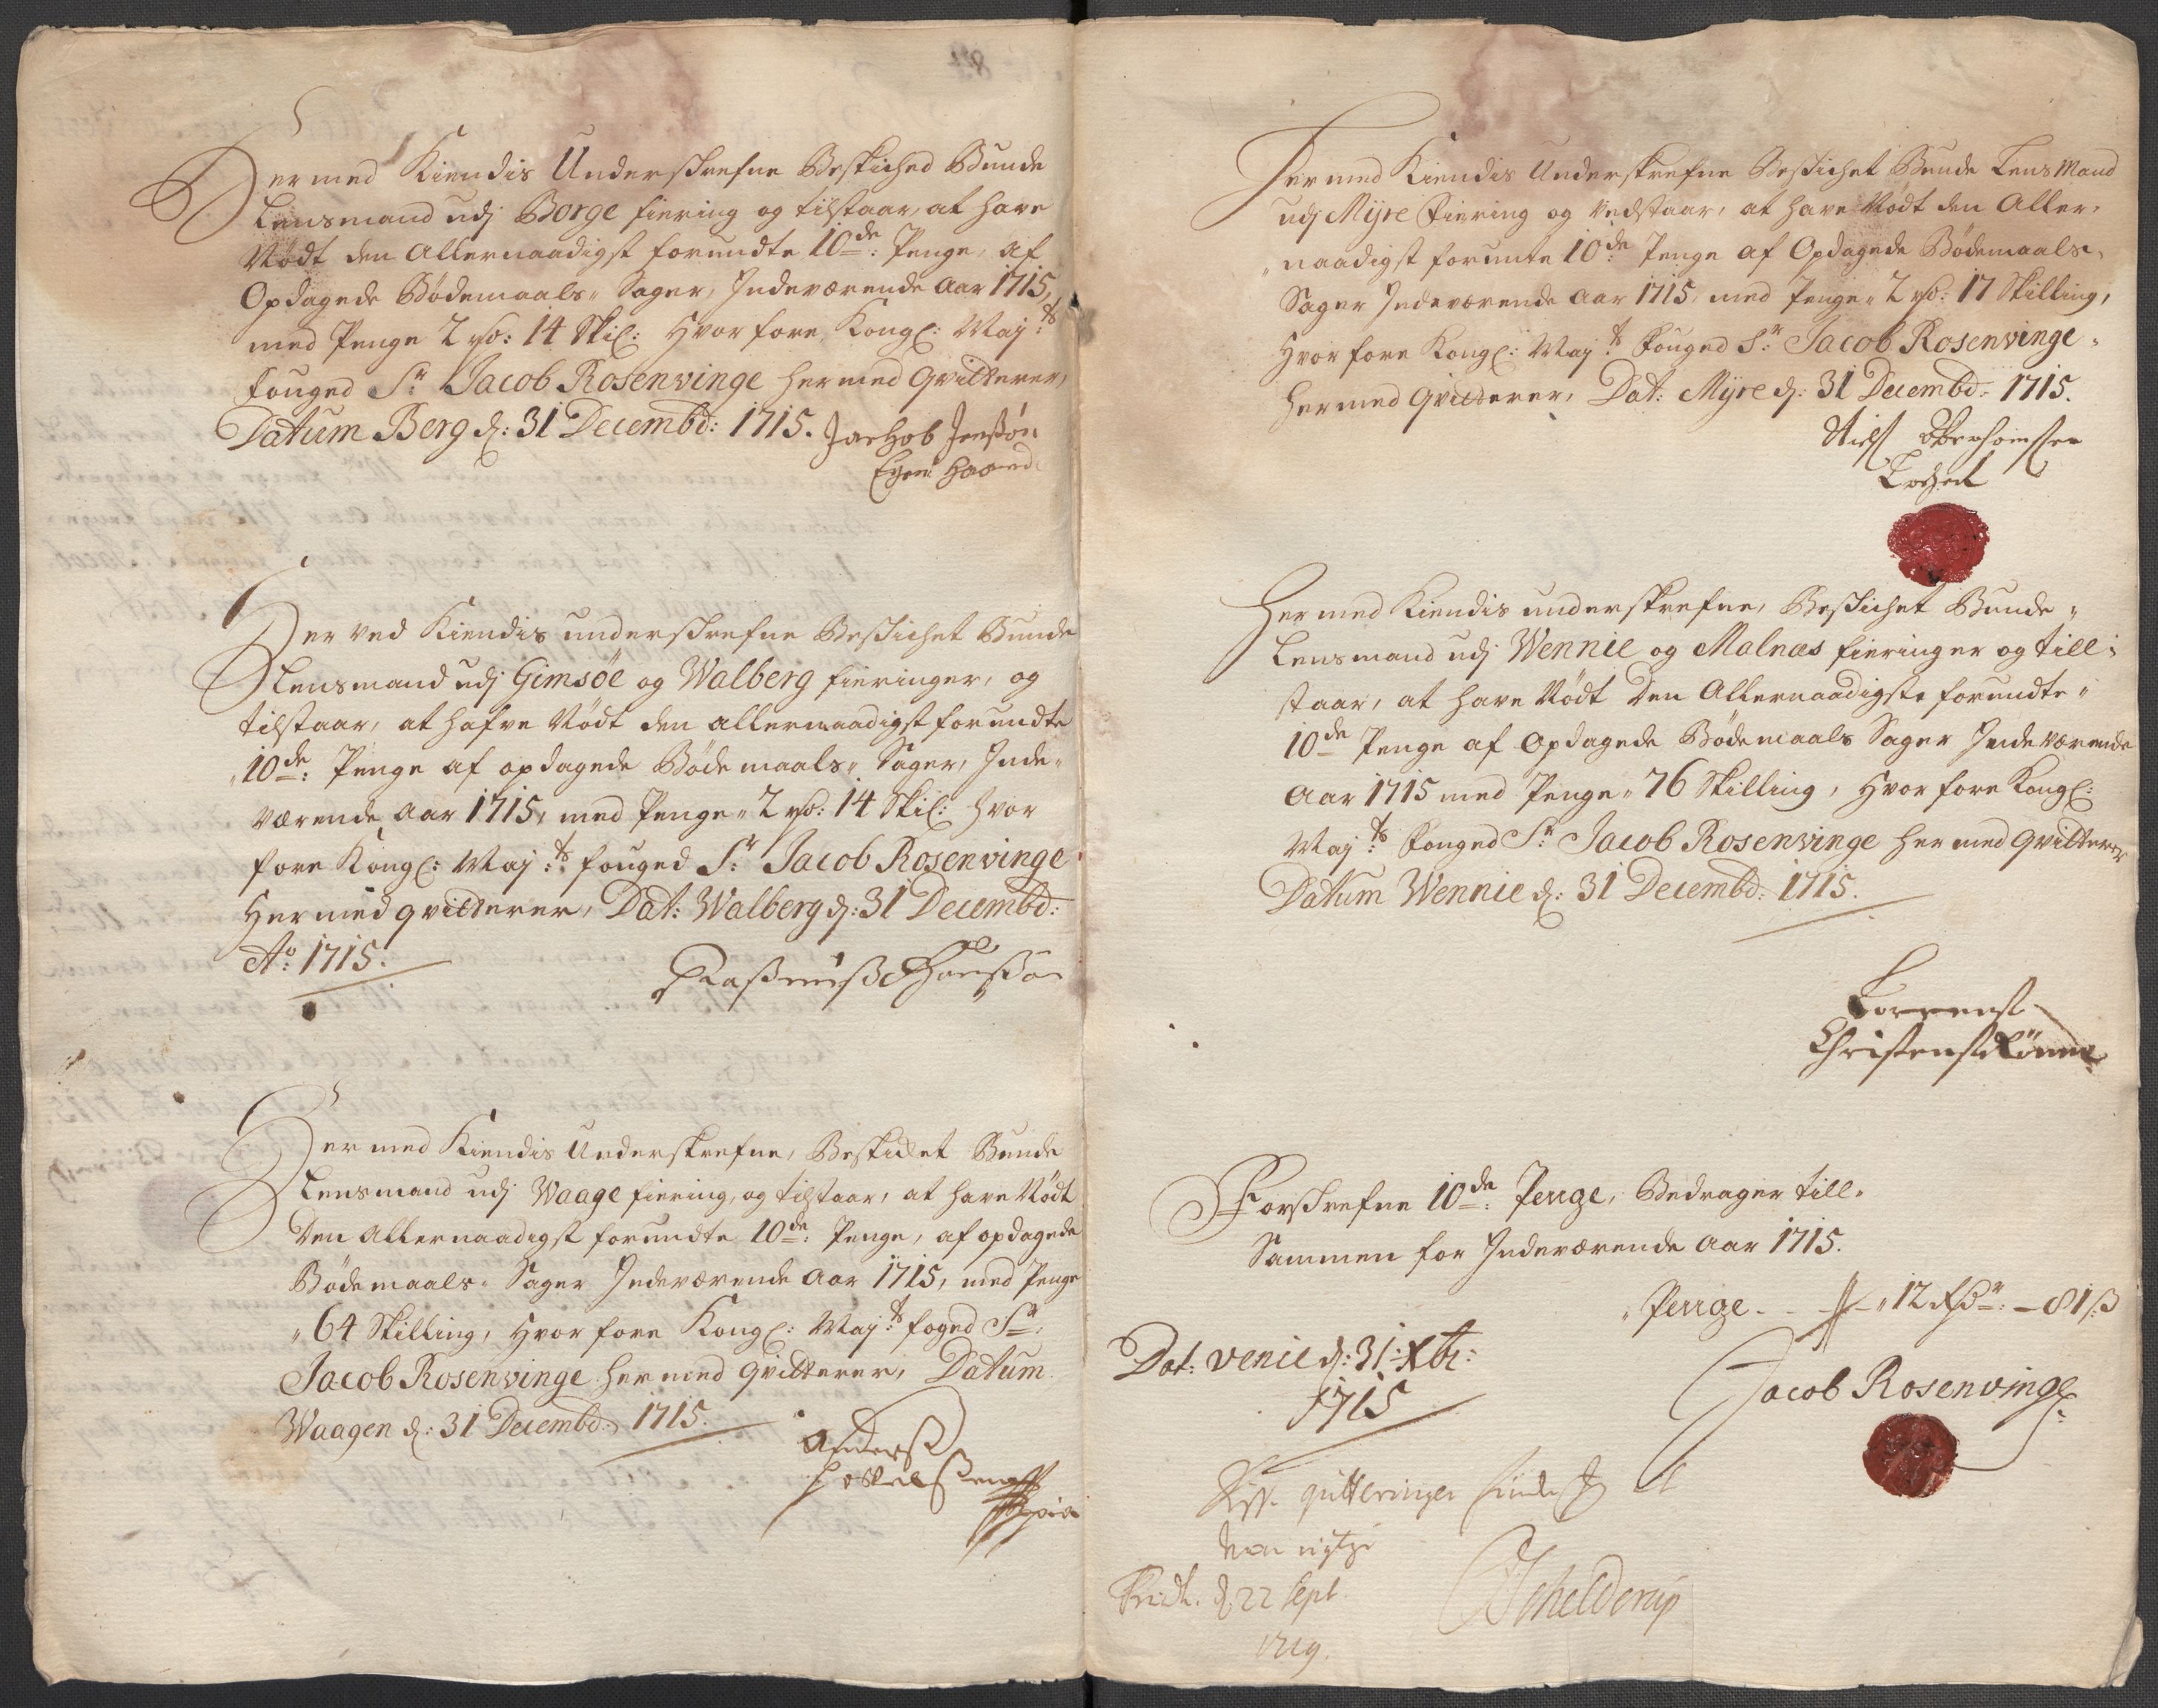 Hermed Kiendis Underskrefne Beskiched Bunde
Lensmand udj Borge fiering og tilstaar, at have
Nødt den Allernaadigst forundte 10de: Penge, af
Opdagede Bødemaals„ Sager, Indeværende Aar 1715,
med Penge 2 rd: 14 Skil: Hvorfore Kongl: Maj:ts
fouged Sr: Jacob Rosenvinge hermed Qvitterer,
Datum Berg d: 31 Decembd: 1715. Jachob Jenssøn
Egen Haand
Herved Kiendis underskrefne Beskichet Bunde
Lensmand udj Gimsøe og Walberg fieringer, og
tilstaar, at hafve Nødt den allernaadigst forundte
„10de: Penge af opdagede Bødemaals„ Sager, Inde„
værende Aar 1715, med Penge„ 2 rd: 14 Skil: hvor
fore Kongl: Maj:ts fouged Sr: Jacob Rosenvinge
Hermed qvitterer, Dat: Walberg d: 31 Decembd:
Ao: 1715.
Rasmuss
Hermed Kiendis Underskrefne, Beskicket Bunde
Lensmand udj Waage fiering, og tilstaar, at have Nødt
Den Allernaadigst forundte 10de: Penge, af opdagede
Bødemaals„ Sager Indeværende Aar 1715, med Penge
„64 Skilling, Hvorfore Kongl: Maj:ts foged Sr:
Jacob Rosenvinge hermed Qvitterer, Datum
Waagen d: 31 Decembd: 1715.
Anderss
Hermed Kiendis Underskrefne Beskichet Bunde Lens Mand
udj Myre Fiering og Vedstaar, at have Nødt den Aller„
„naadigst forunte 10de Penge af Opdagede Bødemaals„
Sager Indeværende Aar 1715, med Penge„ 2 rd: 17 Skilling,
Hvorfore Kongl: Maj:ts Fouged Sr: Jacob Rosenvinge„
hermed Qvitterer, Dat: Myre d: 31 Decembd: 1715.
Niels
Hermed Kiendis underskrefne, Beskichet Bunde„
Lensmand udj Wennie og Malnæs fieringer og till„
staar, at have Nødt Den Allernaadigste forundte„
10de Penge af Opdagede Bødemaals Sager Indeværende
Aar 1715 med Penge„ 76 Skilling, Hvorfore Kongl:
Maj:ts Fouged Sr: Jacob Rosenvinge hermed Qvitterer
Datum Wennie d: 31 Decembd: 1715.
Lorrenst
Christenst
Forskrefne 10de: Penge, Bedrager till„
Sammen for Indeværende Aar 1715.
„Penge - - „12 Rdr: - 81 ß
Dat: Venie d: 31: Xbr:
1715
Jacob Rosenvinge
quitteringer
d 22 Sept.
1719.
Schelderup